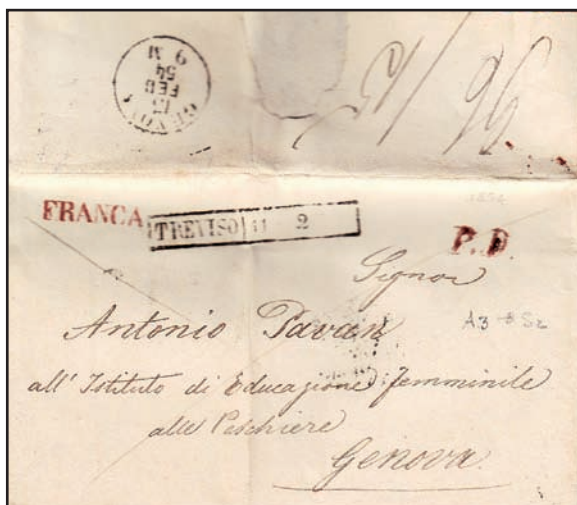 GENOVA
13
FEB
54
9 M
FRANCA
TREVISO 11 2
P.D.
Signor
Antonio Pavan
all' Istituto di Educazione femminile
alle Peschiere
Genova.